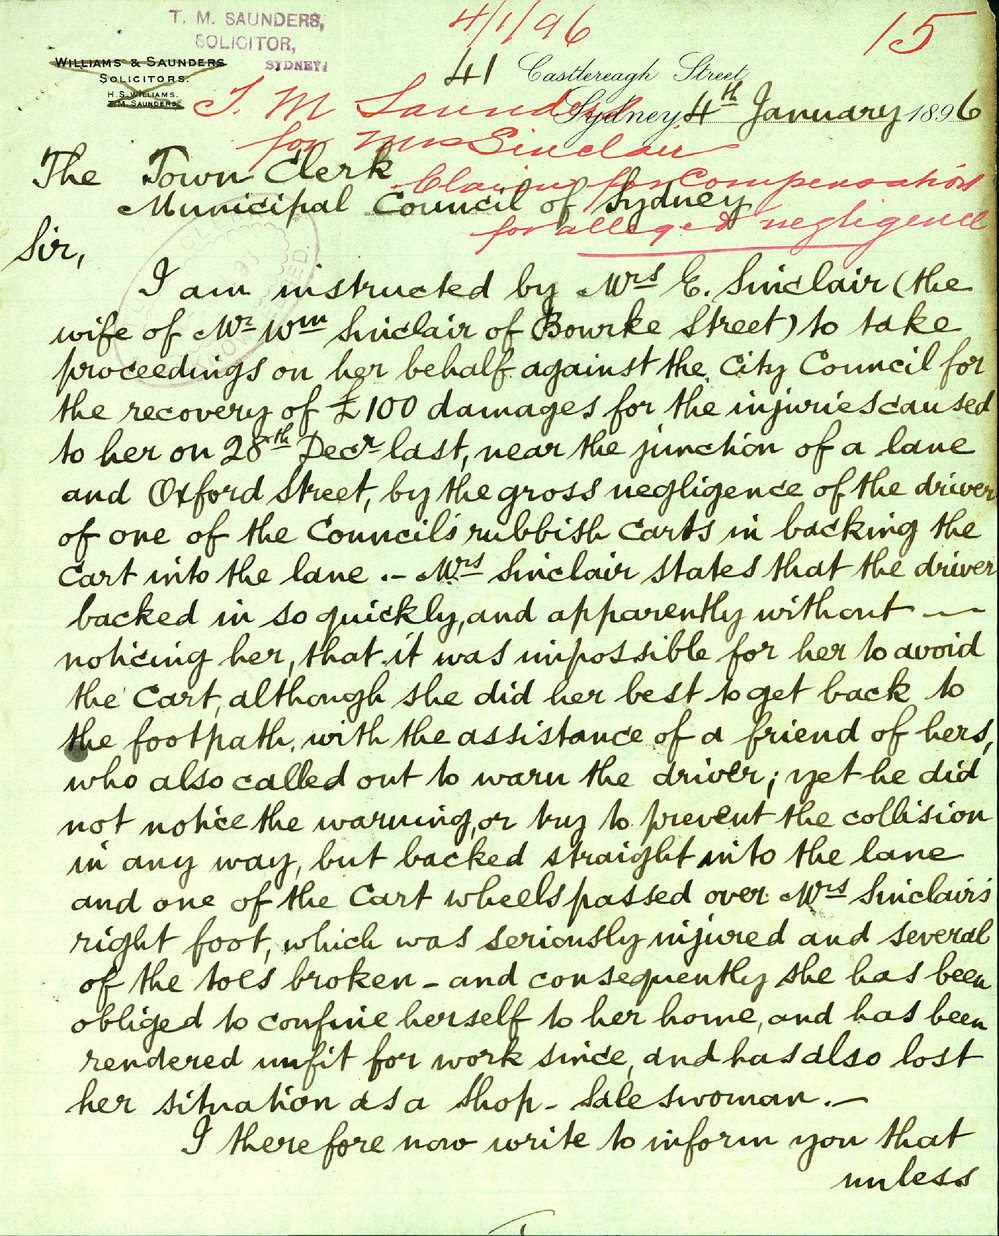 T. M. SAUNDERS,
SOLICITOR,
SYDNEY.
4/1/96
15
WILLIAMS & SAUNDERS
SOLICITORS.
H. S. WILLIAMS.
T. M. SAUNDERS.
41 Castlereagh Street
Sydney 4th January 1896
T. M Saunders
for Mrs Sinclair
Claim for Compensation
for alleged negligence
The Town Clerk
Municipal Council of Sydney
Sir,
I am instructed by Mrs E. Sinclair (the
wife of Mr Wm Sinclair of Bourke Street) to take
proceedings on her behalf against the City Council for
the recovery of £100 damages for the injuries caused
to her on 28th Decr last, near the junction of a lane
and Oxford Street, by the gross negligence of the driver
of one of the Council's rubbish Carts in backing the
Cart into the lane .- Mrs Sinclair states that the driver
backed in so quickly, and apparently without —
noticing her, that it was impossible for her to avoid
the Cart, although she did her best to get back to
the footpath, with the assistance of a friend of hers,
who also called out to warn the driver; yet he did
not notice the warning, or try to prevent the collision
in any way, but backed straight into the lane
and one of the Cart wheels passed over Mrs Sinclair's
right foot, which was seriously injured and several
of the toes broken - and consequently she has been
obliged to confine herself to her home, and has been
rendered unfit for work since, and has also lost
her situation as a Shop-Saleswoman.—
I therefore now write to inform you that
unless